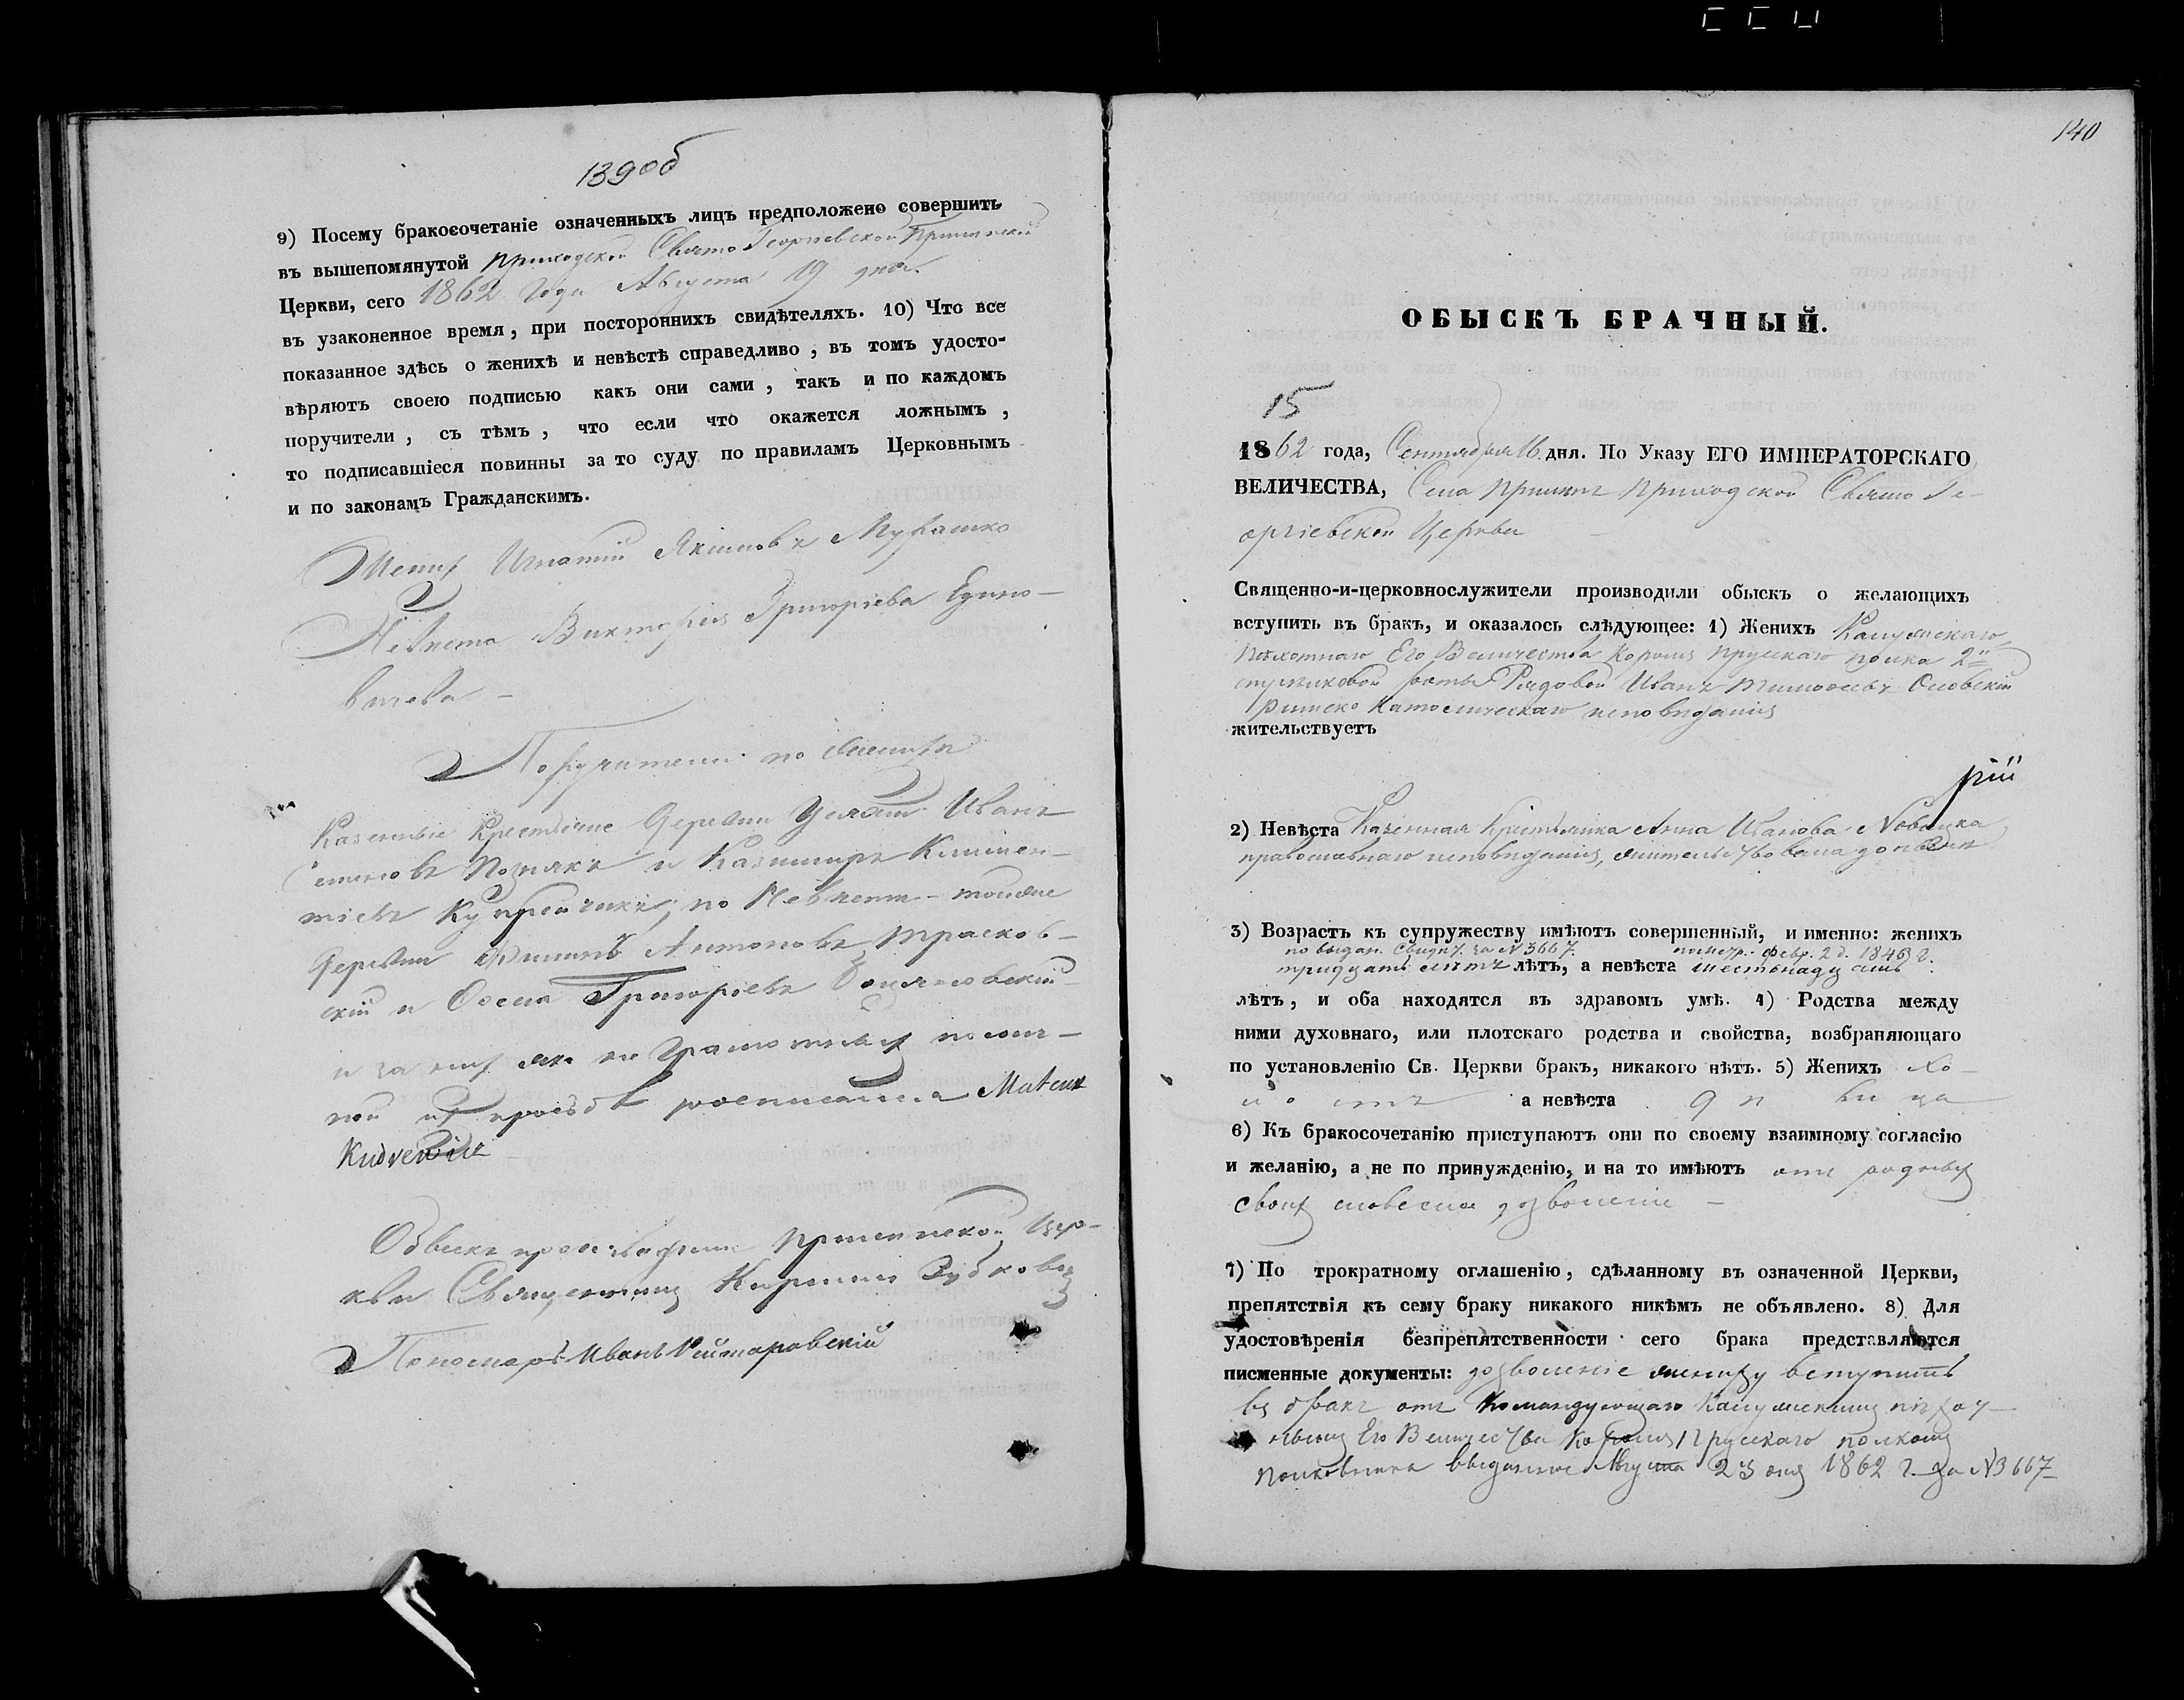 139об
9) Посему бракосочетаніе означенныхъ лицъ предположено совершить
въ вышепомянутой приходской Свято Георгіевской
Церкви, сего 1862 года Августа 19 дня.
въ узаконенное время, при постороннихъ свидѣтеляхъ. 10) Что все
показанное здѣсь о женихѣ и невѣстѣ справедливо, въ томъ удосто-
вѣряютъ своею подписью какъ они сами, такъ и по каждомъ
поручители, съ тѣмъ, что если что окажется ложнымъ,
то подписавшіеся повинны за то суду по правиламъ Церковнымъ
и по законамъ Гражданскимъ.
Женихъ Игнатій Якимовъ Мурашко
Невѣста Викторія Григоріева
Поручители по женихѣ
Казенные Крестьяне Деревни Иванъ
Познякъ и Казимиръ Климен-
тіевъ по Невѣстѣ – тойже
Деревни Антоновъ Трасков-
скій и Осипъ Григоріевъ
и за нихъ яко не грамотныхъ по лич-
ной ихъ просьбѣ росписался
Обыскъ производили Церк-
кви Священникъ
Пономарь Иванъ
140
ОБЫСКЪ БРАЧНЫЙ.
15
1862 года, Сентября 16 дня. По Указу ЕГО ИМПЕРАТОРСКАГО
ВЕЛИЧЕСТВА, Села Приходской Свято Ге-
оргіевской Церкви
Священно-и-церковнослужители производили обыскъ о желающихъ
вступить въ бракъ, и оказалось слѣдующее: 1) Женихъ Калужскаго
Пѣхотнаго Его Величества Короля Прускаго полка 2й
стрѣлковой роты Рядовой Иванъ Тимоѳеевъ
Римско Католическаго исповѣданія
жительствуетъ
рій
2) Невѣста Казенная Крестьянка Анна Иванова
православнаго исповѣданія, жительствовала
3) Возрастъ къ супружеству имѣютъ совершенный, и именно: женихъ
по выдан. Свидѣт. за N 3667. Февр. 2 д. 1846 г.
тридцать лѣтъ лѣтъ, а невѣста шестьнадцать
лѣтъ, и оба находятся въ здравомъ умѣ. 4) Родства между
ними духовнаго, или плотскаго родства и свойства, возбраняющаго
по установленію Св. Церкви бракъ, никакого нѣтъ. 5) Женихъ хо-
лостъ а невѣста дѣвица
6) Къ бракосочетанію приступаютъ они по своему взаимному согласію
и желанію, а не по принужденію, и на то имѣютъ отъ родныхъ
своихъ словесное дозволеніе –
7) По трократному оглашенію, сдѣланному въ означенной Церкви,
препятствія къ сему браку никакого никѣмъ не объявлено. 8) Для
удостовѣренія безпрепятственности сего брака представляются
писменные документы: дозволеніе жениху вступить
въ бракъ отъ Командующаго Калужскимъ пѣхот-
нымъ Его Величества Короля Прусскаго полкомъ
полковника выданное Августа 23 дня 1862 г. за N 3667